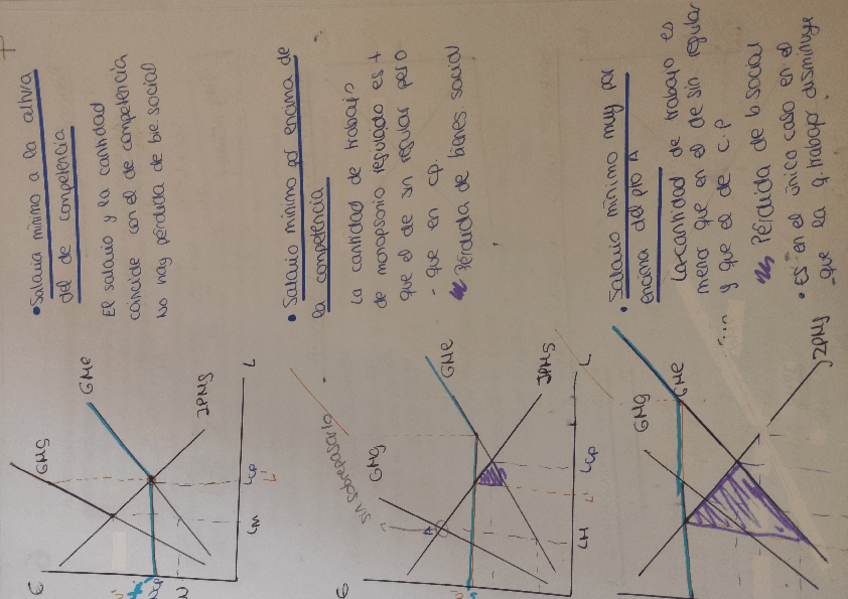 • Salario mínimo a la altura
del de competencia
El salario y la cantidad
coincide con el de competencia
No hay pérdida de bie social
€
GMg
GMe
IPMg
L
LM
Lcp
L'
W
• Salario mínimo por encima de
la competencia
La cantidad de trabajo
de monopsonio regulado es +
que el de sin regular pero
- que en cp.
Pérdida de bienes. social
€
sin sobrepasarlo
A
GMg
GMe
IPMg
L
LM
L'
Lcp
• Salario mínimo muy por
encima del pto A
La cantidad de trabajo es
menor que en el de sin regular
y que el de C.P
Pérdida de b social
• Es en el único caso en el
que la q. trabajo disminuye.
GMg
GMe
IPMg